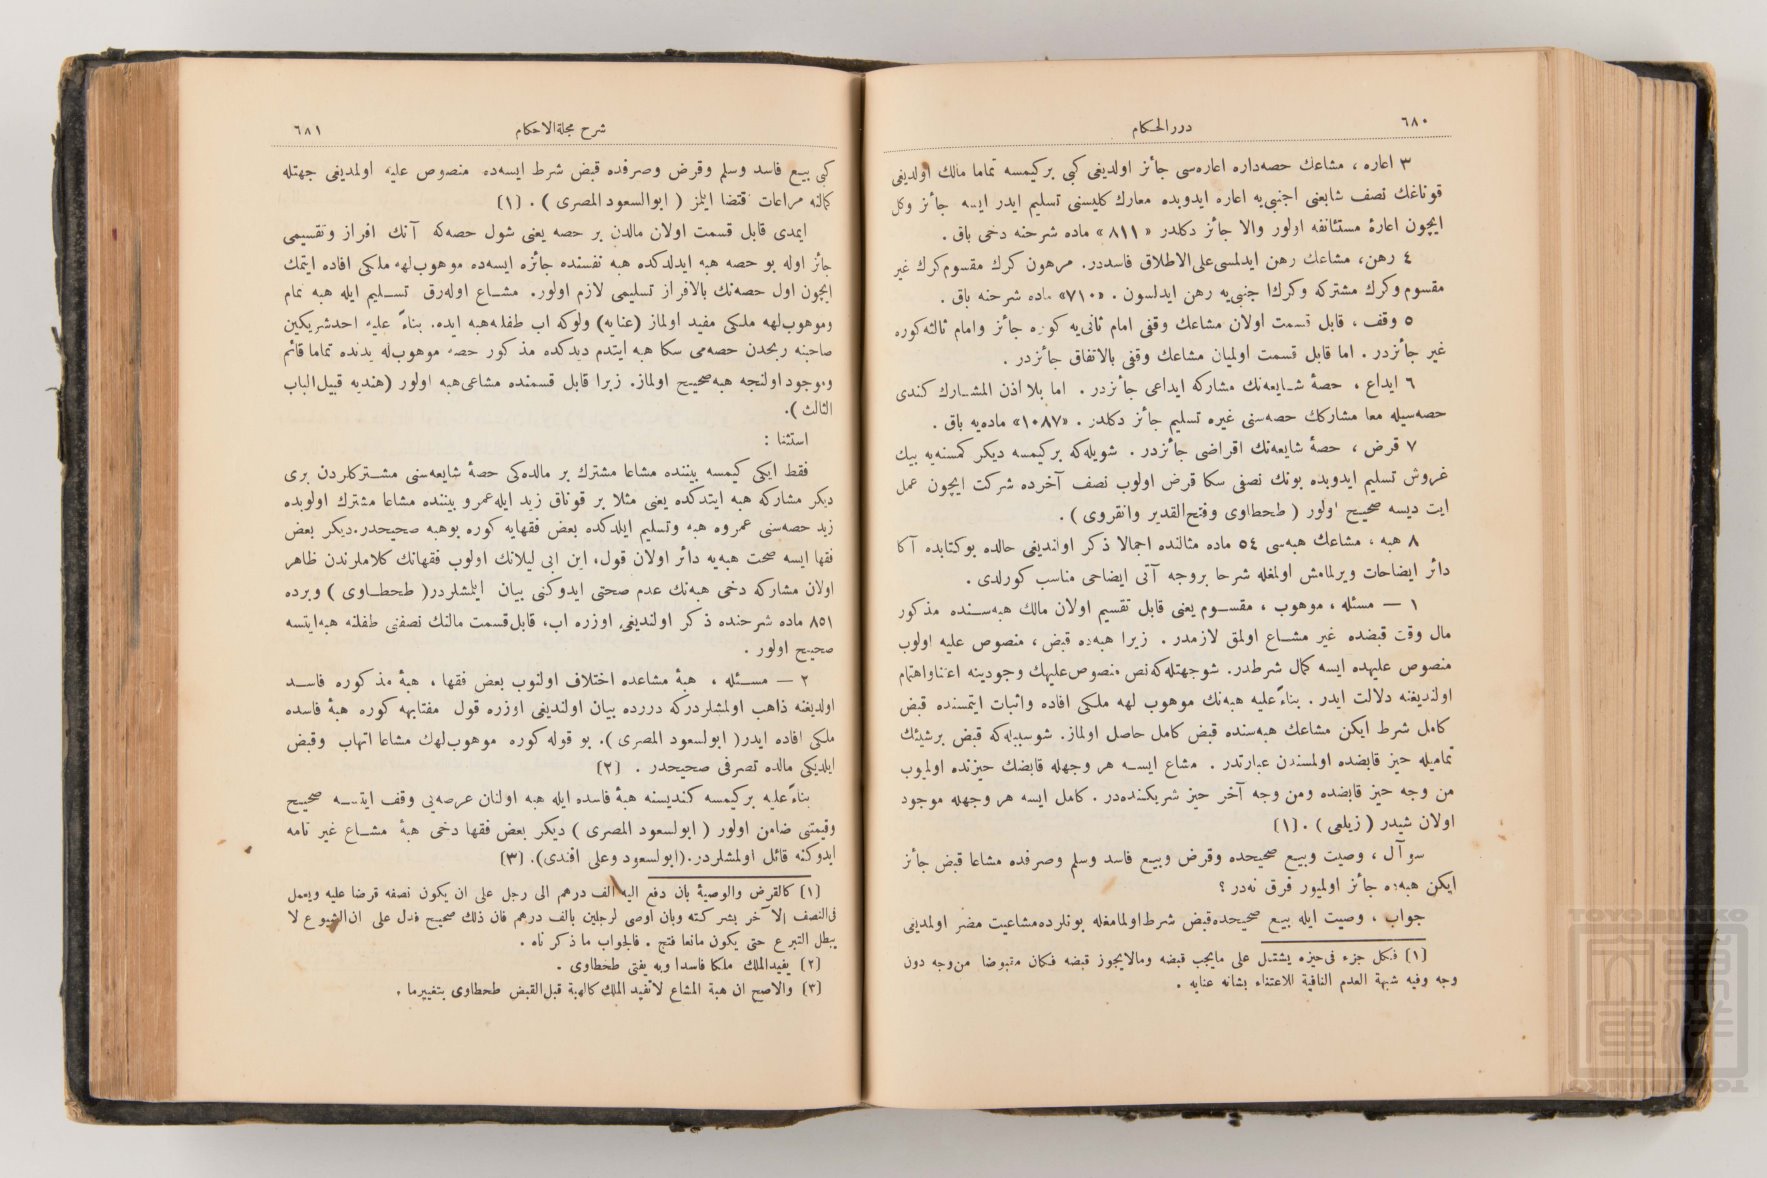 ٦٨٠
دررالحكام
٣ اعاره ، مشاعك حصه‌داره اعاره‌سی جائز اولديغی كبی بركيمسه تماما مالك اولديغی
قوناغك نصف شايعنی اجنبی‌يه اعاره ايدوبده معارك كليسنی تسليم ايدر ايسه جائز وكل
ايچون اعارهٔ مستثانفه اولور والا جائز دكلدر «٨١١» ماده شرحنه دخی باق .
٤ رهن، مشاعك رهن ايدلمسی‌علی‌الاطلاق فاسددر. مرهون كرك مقسوم‌كرك غير
مقسوم وكرك مشتركه وكرك‌ا جنبی‌يه رهن ايدلسون . «٧١٠» ماده شرحنه باق .
٥ وقف ، قابل قسمت اولان مشاعك وقفی امام ثانی‌يه كوره جائز وامام ثالثه‌كوره
غير جائزدر . اما قابل قسمت اولميان مشاعك وقفی بالاتفاق جائزدر .
٦ ايداع ، حصهٔ شايعه‌نك مشاركه ايداعی جائزدر . اما بلا اذن المشارك كندی
حصه‌سيله معا مشاركك حصه‌سنی غيره تسليم جائز دكلدر . «١٠٨٧» ماده‌يه باق .
٧ قرض ، حصهٔ شايعه‌نك اقراضی جائزدر . شويله‌كه بركيمسه ديكر كمسنه‌يه بيك
غروش تسليم ايدوبده بونك نصفی سكا قرض اولوب نصف آخرده شركت ايچون عمل
ايت ديسه صحيح اولور ( طحطاوی وفتح‌القدير وانقروی ) .
٨ هبه ، مشاعك هبه‌سی ٥٤ ماده مثالنده اجمالا ذكر اولنديغی حالده بوكتابده آكا
دائر ايضاحات ويرلمامش اولمغله شرحا بروجه آتی ايضاحی مناسب كورلدی .
١ — مسئله ، موهوب ، مقسوم يعنی قابل تقسيم اولان مالك هبه‌سنده مذكور
مال وقت قبضده غير مشاع اولمق لازمدر . زيرا هبه‌ده قبض ، منصوص عليه اولوب
منصوص عليهده ايسه كمال شرطدر. شوجهتله‌كه‌نص منصوص‌عليهك وجودينه اعتناواهتمام
اولنديغنه دلالت ايدر . بناءً‌عليه هبه‌نك موهوب لهه ملكی افاده واثبات ايتمسنده قبض
كامل شرط ايكن مشاعك هبه‌سنده قبض كامل حاصل اولماز. شوسببله‌كه قبض برشيئك
تماميله حيز قابضده اولمسندن عبارتدر . مشاع ايسه هر وجهله قابضك حيزنده اولميوب
من وجه حيز قابضده ومن وجه آخر حيز شريكنده‌در . كامل ايسه هر وجهله موجود
اولان شيدر ( زيلعی ) . (١)
سوآل ، وصيت وبيع صحيحده وقرض وبيع فاسد وسلم وصرفده مشاعا قبض جائز
ايكن هبه‌ده جائز اولميور فرق نه‌در ؟
جواب ، وصيت ايله بيع صحيحده‌قبض شرط‌اولمامغله بونلرده‌مشاعيت مضر اولمديغی
(١) فكل جزء فی‌حيزه يشتمل علی مايجب قبضه ومالايجوز قبضه فكان مقبوضا من‌وجه دون
وجه وفيه شبهة العدم النافية للاعتناء بشانه عنايه .
شرح مجلةالاحكام
٦٨١
كبی بيع فاسد وسلم وقرض وصرفده قبض شرط ايسه‌ده منصوص عليه اولمديغی جهتله
كمالنه مراعات اقتضا ايلمز ( ابوالسعود المصری ) . (١)
ايمدی قابل قسمت اولان مالدن بر حصه يعنی شول حصه‌كه آنك افراز وتقسيمی
جائز اوله بو حصه هبه ايدلدكده هبه نفسنده جائزه ايسه‌ده موهوب‌لهه ملكی افاده ايتمك
ايچون اول حصه‌نك بالافراز تسليمی لازم اولور. مشاع اوله‌رق تسليم ايله هبه تمام
وموهوب‌لهه ملكی مفيد اولماز (عنايه) ولوكه اب طفلنه‌هبه ايده. بناءً عليه احدشريكين
صاحبنه ربحدن حصه‌می سكا هبه ايتدم ديدكده مذكور حصه موهوب‌له يدنده تماما قائم
وموجود اولنجه هبه‌صحيح اولماز. زيرا قابل قسمنده مشاعی‌هبه اولور (هنديه قبيل‌الباب
الثالث ).
استثنا :
فقط ايكی كيمسه بيننده مشاعا مشترك بر مالده‌كی حصهٔ شايعه‌سنی مشتركلردن بری
ديكر مشاركه هبه ايتدكده يعنی مثلا بر قوناق زيد ايله‌عمرو بيننده مشاعا مشترك اولوبده
زيد حصه‌سنی عمروه هبه وتسليم ايلدكده بعض فقهايه كوره بوهبه صحيحدر.ديكر بعض
فقها ايسه صحت هبه‌يه دائر اولان قول، ابن ابی ليلانك اولوب فقهانك كلاملرندن ظاهر
اولان مشاركه دخی هبه‌نك عدم صحتی ايدوكنی بيان ايلمشلردر( طحطاوی ) وبرده
٨٥١ ماده شرحنده ذكر اولنديغی اوزره اب، قابل‌قسمت مالنك نصفنی طفلنه هبه‌ايتسه
صحيح اولور .
٢ — مسئله ، هبهٔ مشاعده اختلاف اولنوب بعض فقها ، هبهٔ مذكوره فاسد
اولديغنه ذاهب اولمشلردركه دررده بيان اولنديغی اوزره قول مفتابهه كوره هبهٔ فاسده
ملكی افاده ايدر( ابولسعود المصری ). بو قوله كوره موهوب‌لهك مشاعا اتهاب وقبض
ايلديكی مالده تصرفی صحيحدر . (٢)
بناءً‌عليه بركيمسه كنديسنه هبهٔ فاسده ايله هبه اولنان عرصه‌یی وقف ايتسه صحيح
وقيمتنی ضامن اولور ( ابولسعود المصری ) ديكر بعض فقها دخی هبهٔ مشاع غير تامه
ايدوكنه قائل اولمشلردر.(ابولسعود وعلی افندی). (٣)
(١) كالقرض والوصية بان دفع اليه الف درهم الی رجل علی ان يكون نصفه قرضا عليه ويعمل
فی‌النصف الآخر بشركته وبان اوصی لرجلين بالف درهم فان ذلك صحيح فدل علی ان‌الشيوع لا
يبطل التبرع حتی يكون مانعا فتح . فالجواب ما ذكرناه .
(٢) يفيدالملك ملكا فاسدا وبه يفتی طحطاوی .
(٣) والاصح ان هبة المشاع لاتفيد الملك كالهبة قبل‌القبض طحطاوی بتغييرما .
TOYO BUNKO
東洋文庫
TOYO BUNKO